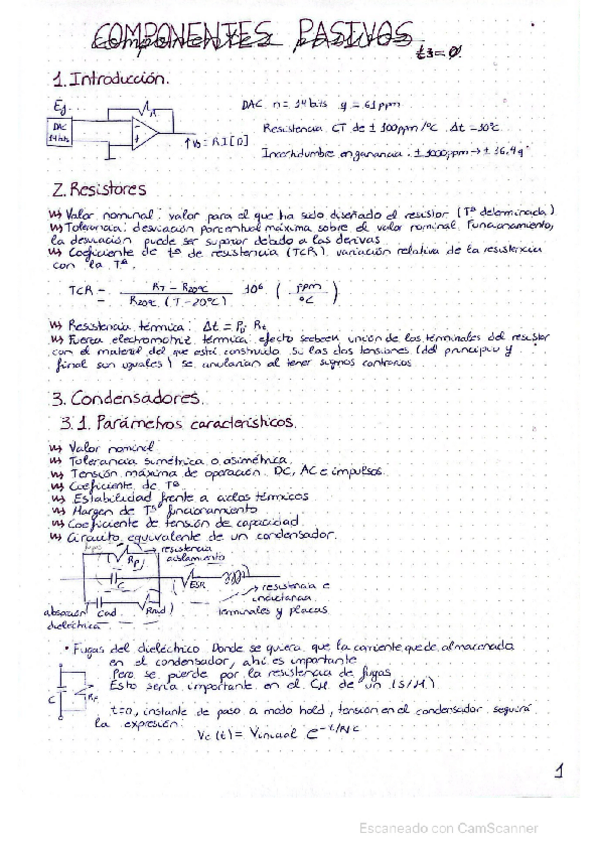 COMPONENTES PASIVOS
1. Introducción.
Ej. DAC n = 14 bits q = 61 ppm
DAC
14 bits
Resistencia CT de ± 100ppm/ºC Δt = 10ºC
Incertidumbre en ganancia: ± 1000ppm → ± 16.4q
2. Resistores
Valor nominal: valor para el que ha sido diseñado el resistor (Tª determinada)
Tolerancia: desviación porcentual máxima sobre el valor nominal. Funcionamiento,
la desviación puede ser superior debido a las derivas.
Coeficiente de tª de resistencia (TCR) variación relativa de la resistencia
con la Tª.
TCR = RT − R20ºC / R20ºC (T − 20ºC) 10⁶ ( ppm / ºC )
Resistencia térmica: Δt =
Fuerza electromotriz térmica: efecto unión de los terminales del resistor
con el material del que está construido. Si las dos tensiones (del principio y
final son iguales) se anularían al tener signos contrarios
3. Condensadores.
3.1. Parámetros característicos.
Valor nominal
Tolerancia simétrica o asimétrica.
Tensión máxima de operación DC, AC e impulsos.
Coeficiente de Tª
Estabilidad frente a ciclos térmicos
Margen de Tª funcionamiento
Coeficiente de tensión de capacidad.
Circuito equivalente de un condensador.
fugas
Rp
resistencia
aislamiento
C
ESR
resistencia e
inductancia
terminales y placas.
absorción
dieléctrica
Cad
Rad
• Fugas del dieléctrico. Donde se quiera que la corriente quede almacenada
en el condensador, ahí es importante
Pero se pierde por la resistencia de fugas
Esto sería importante en el CH de un (S/H)
C
Rp
t=0, instante de paso a modo hold, tensión en el condensador seguirá
la expresión:
Vc(t) = Vinicial
1
Escaneado con CamScanner